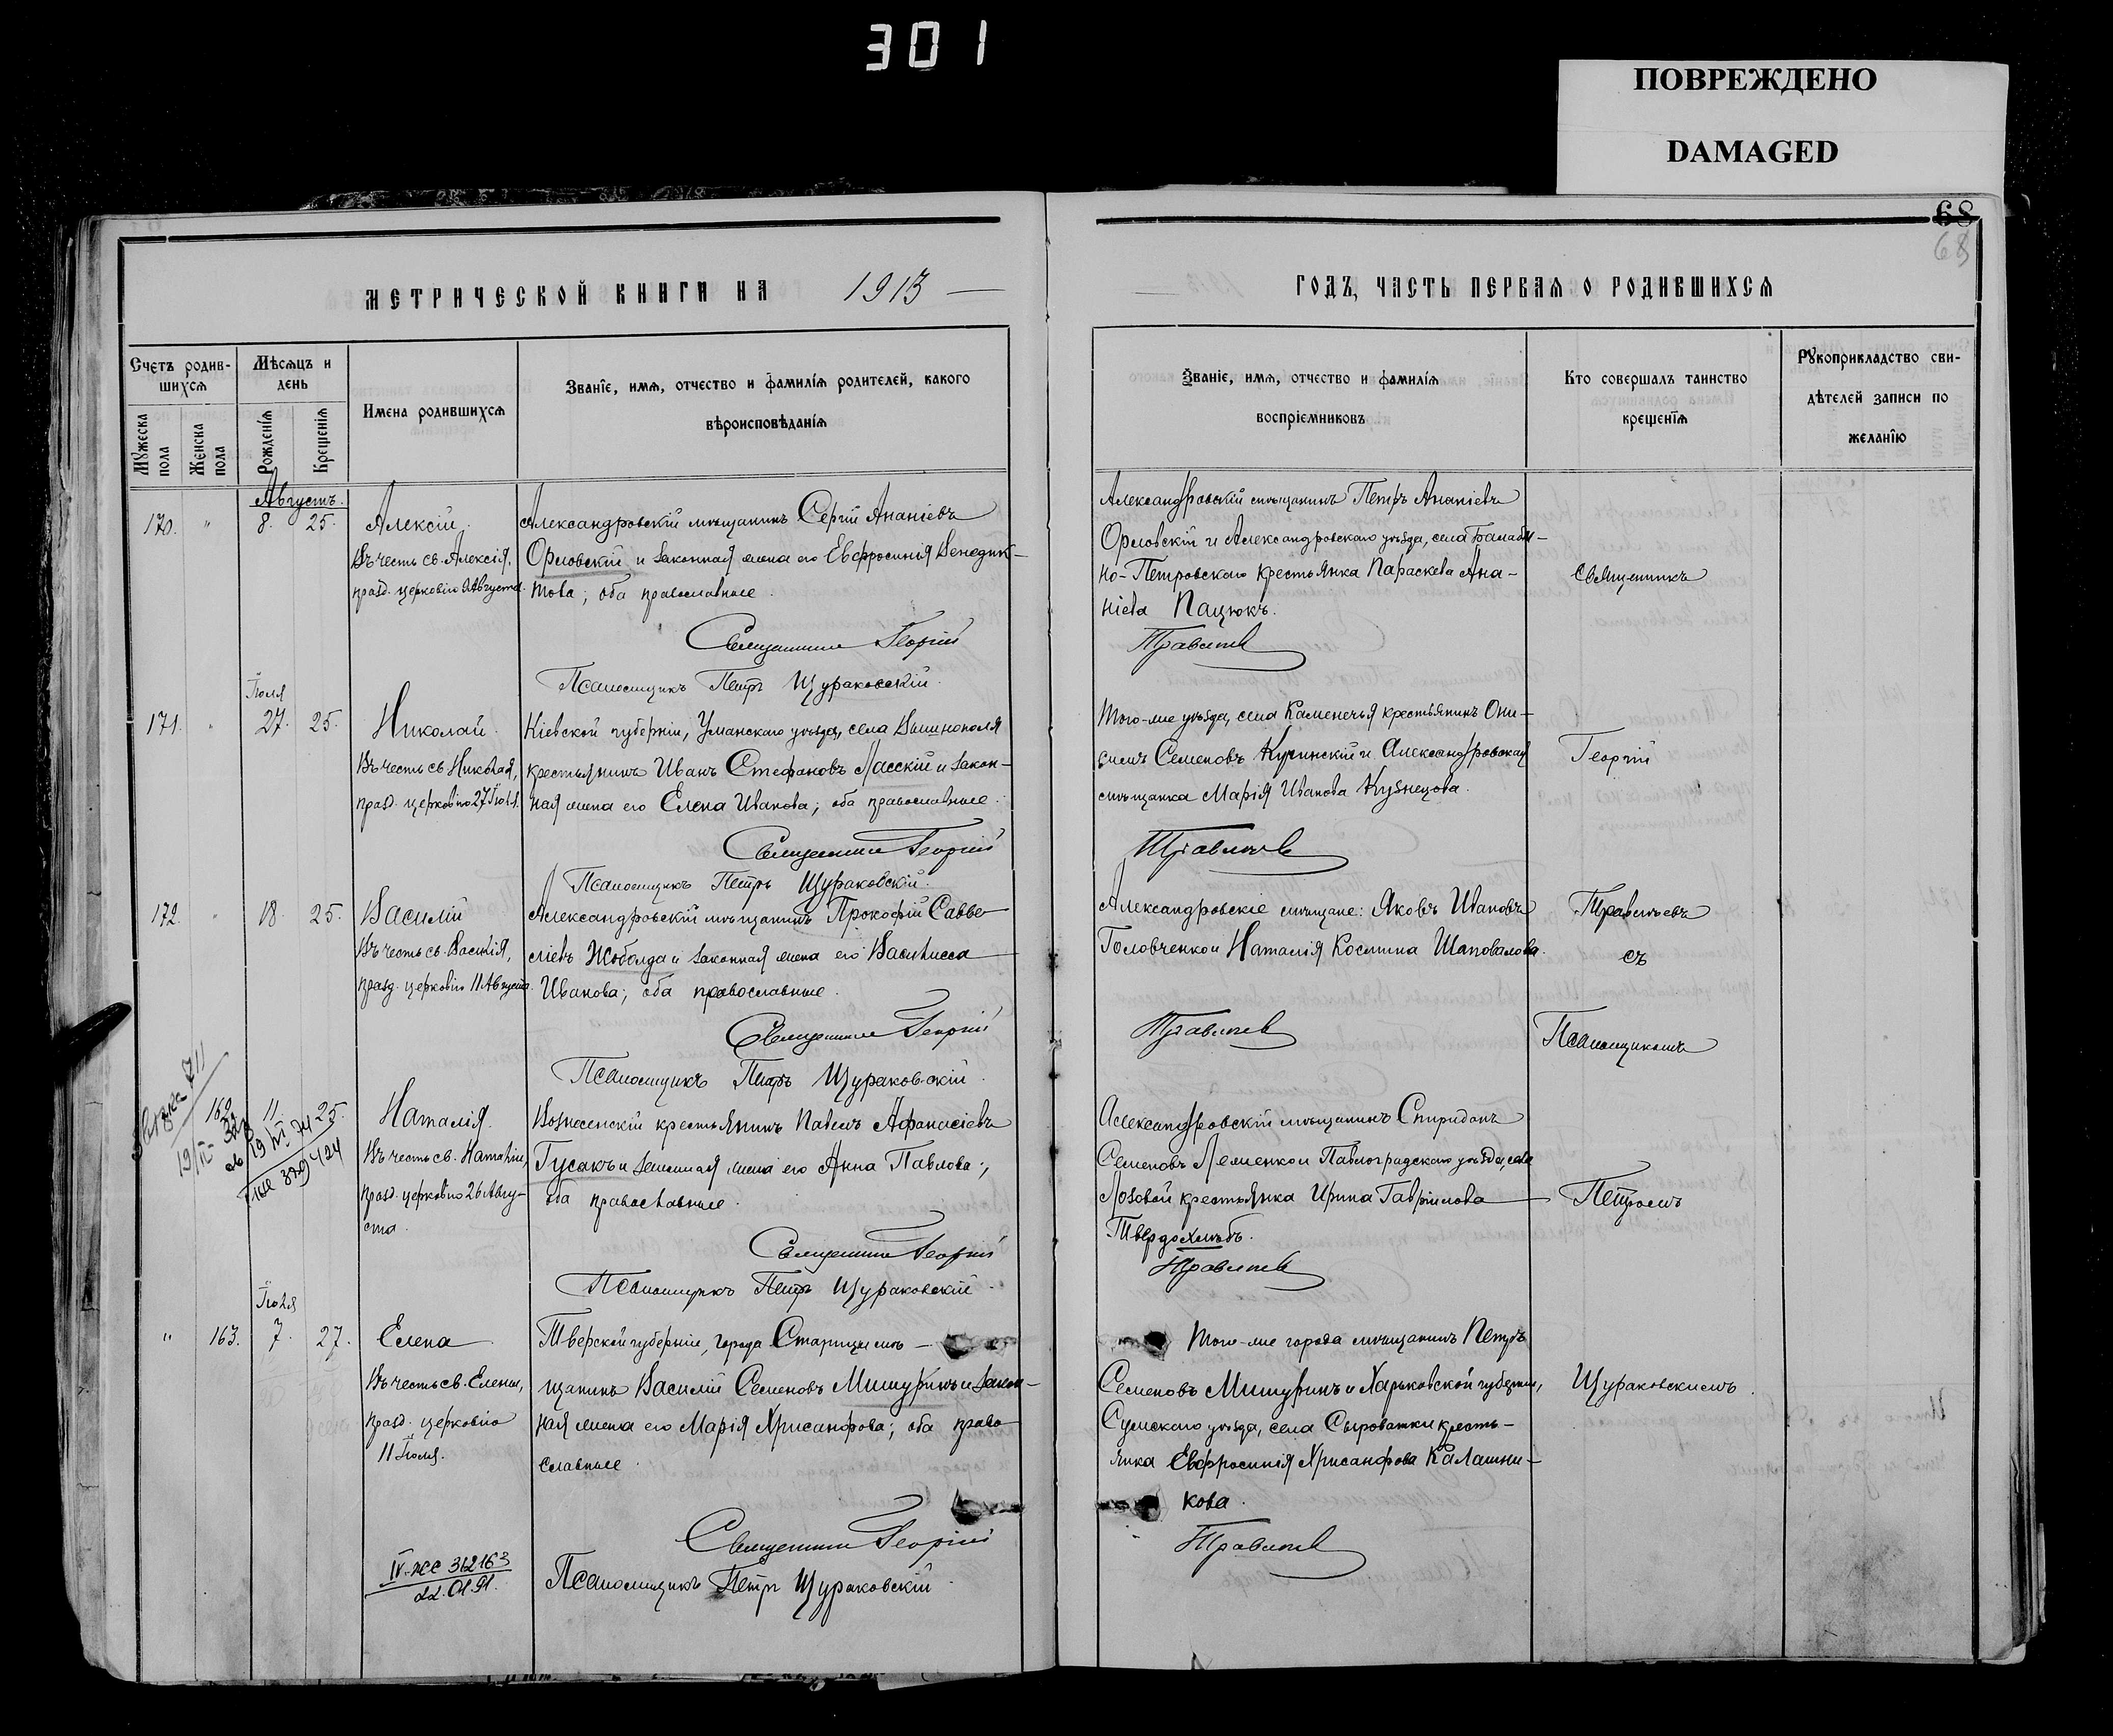 301
ПОВРЕЖДЕНО
DAMAGED
68
68
МЕТРИЧЕСКОЙ КНИГИ НА 1913
ГОДЪ, ЧАСТЬ ПЕРВАЯ О РОДИВШИХСЯ
Счетъ родив-
шихся
Мужеска пола
Женска пола
Мѣсяцъ и
день
Рожденія
Крещенія
Имена родившихся
Званіе, имя, отчество и фамилія родителей, какого
вѣроисповѣданія
Званіе, имя, отчество и фамилія
воспріемниковъ
Кто совершалъ таинство
крещенія
Рукоприкладство сви-
дѣтелей записи по
желанію
Августъ.
170. " 8. 25.
Алексій.
Въ честь св. Алексія,
празд. церковію 9 Августа.
Александровскій мѣщанинъ Сергій Ананіевъ
Орловскій и законная жена его Евфросинія Венедик-
това; оба православные.
Священникъ Георгій
Псаломщикъ Петръ Щураковскій.
Александровскій мѣщанинъ Петръ Ананіевъ
Орловскій и Александровскаго уѣзда, села Балаби-
но-Петровскаго крестьянка Параскева Ана-
ніева Пацюкъ.
Травлевъ
Священникъ
Іюля
171. " 27. 25.
Николай.
Въ честь св. Николая,
празд. церковію 27 Іюля.
Кіевской губерніи, Уманскаго уѣзда, села Вишнополя
крестьянинъ Иванъ Стефановъ Ласскій и закон-
ная жена его Елена Иванова; оба православные.
Священникъ Георгій
Псаломщикъ Петръ Щураковскій.
Того-же уѣзда, села Каменечья крестьянинъ Они-
симъ Семеновъ Кучинскій и Александровская
мѣщанка Марія Иванова Кузнецова.
Георгій
172. " 18. 25.
Василій
Въ честь св. Василія,
празд. церковію 11 Августа.
Александровскій мѣщанинъ Прокофій Савве-
ліевъ Жоболда и законная жена его Василисса
Иванова; оба православные.
Священникъ Георгій
Псаломщикъ Петръ Щураковскій.
Александровскіе мѣщане: Яковъ Ивановъ
Головченко и Наталія Космина Шаповалова.
съ
Псаломщикомъ
162. 11. 25.
Наталія.
Въ честь св. Наталіи,
празд. церковію 26 Авгу-
ста.
Вознесенскій крестьянинъ Павелъ Афанасіевъ
Гусакъ и законная жена его Анна Павлова;
оба православные.
Священникъ Георгій
Псаломщикъ Петръ Щураковскій.
Александровскій мѣщанинъ Спиридонъ
Семеновъ Леменко и Павлоградскаго уѣзда, села
Лозовой крестьянка Ирина Гавріилова
Твердохлѣбъ.
Петромъ
Іюля
" 163. 7. 27.
Елена
Въ честь св. Елены,
празд. церковію
11 Іюля.
Тверской губерніи, города Старицы мѣ-
щанинъ Василій Семеновъ Мишуринъ и закон-
ная жена его Марія Хрисанфова; оба право-
славные.
Священникъ Георгій
Псаломщикъ Петръ Щураковскій.
Того-же города мѣщанинъ Петръ
Семеновъ Мишуринъ и Харьковской губерніи,
Сумскаго уѣзда, села Сыроватки кресть-
янка Евфросинія Хрисанфова Калашни-
кова.
Щураковскимъ.
22.01.91.